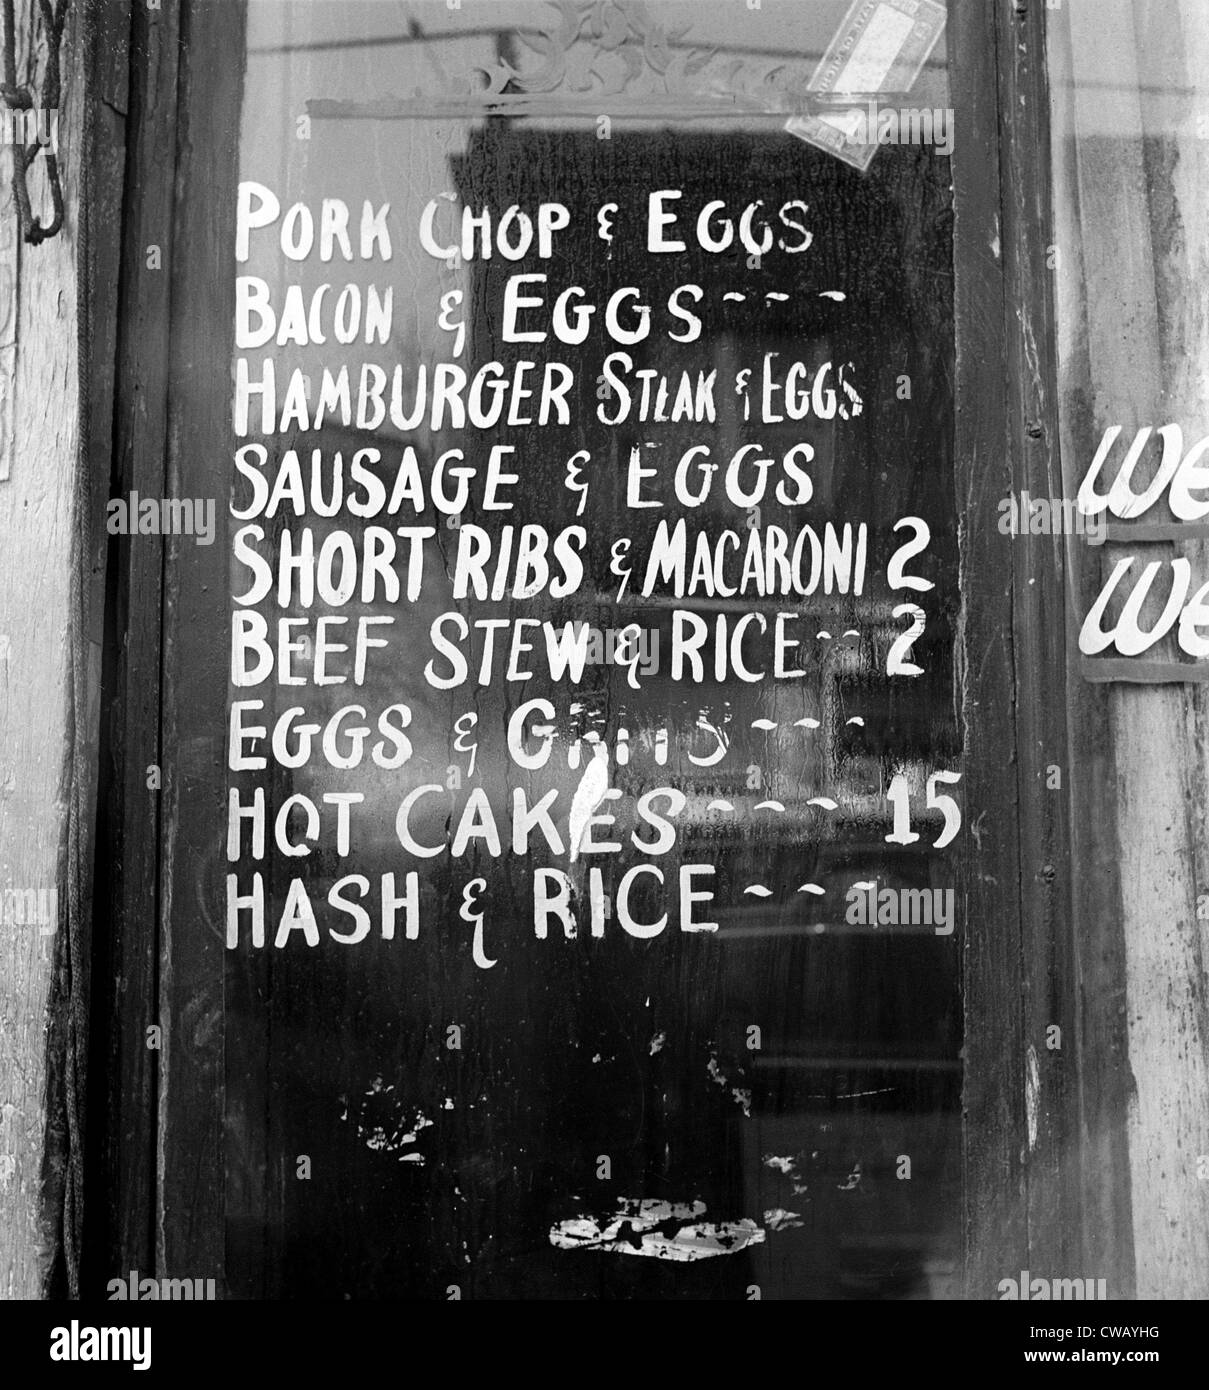 PORK CHOP & EGGS
BACON & EGGS ~ ~ ~
HAMBURGER STEAK & EGGS
SAUSAGE & EGGS
SHORT RIBS & MACARONI 2
BEEF STEW & RICE ~ ~ 2
EGGS & GRITS ~ ~ ~
HOT CAKES ~ ~ ~ 15
HASH & RICE ~ ~ ~
We
We
alamy
alamy
Image ID: CWAYHG
www.alamy.com